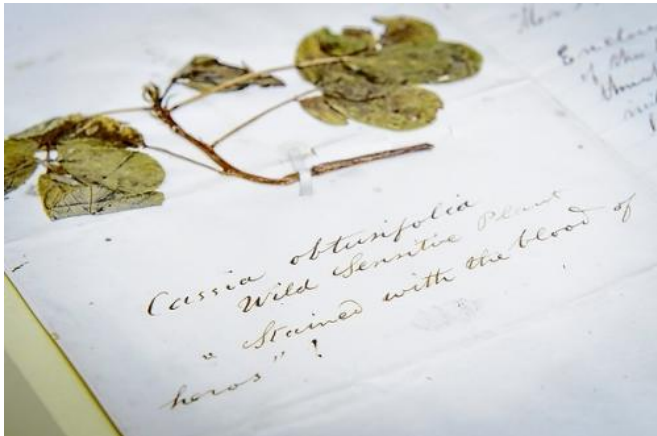 of the
Cassia obtusifolia
Wild Sensitive Plant
"Stained with the blood of
heros" !